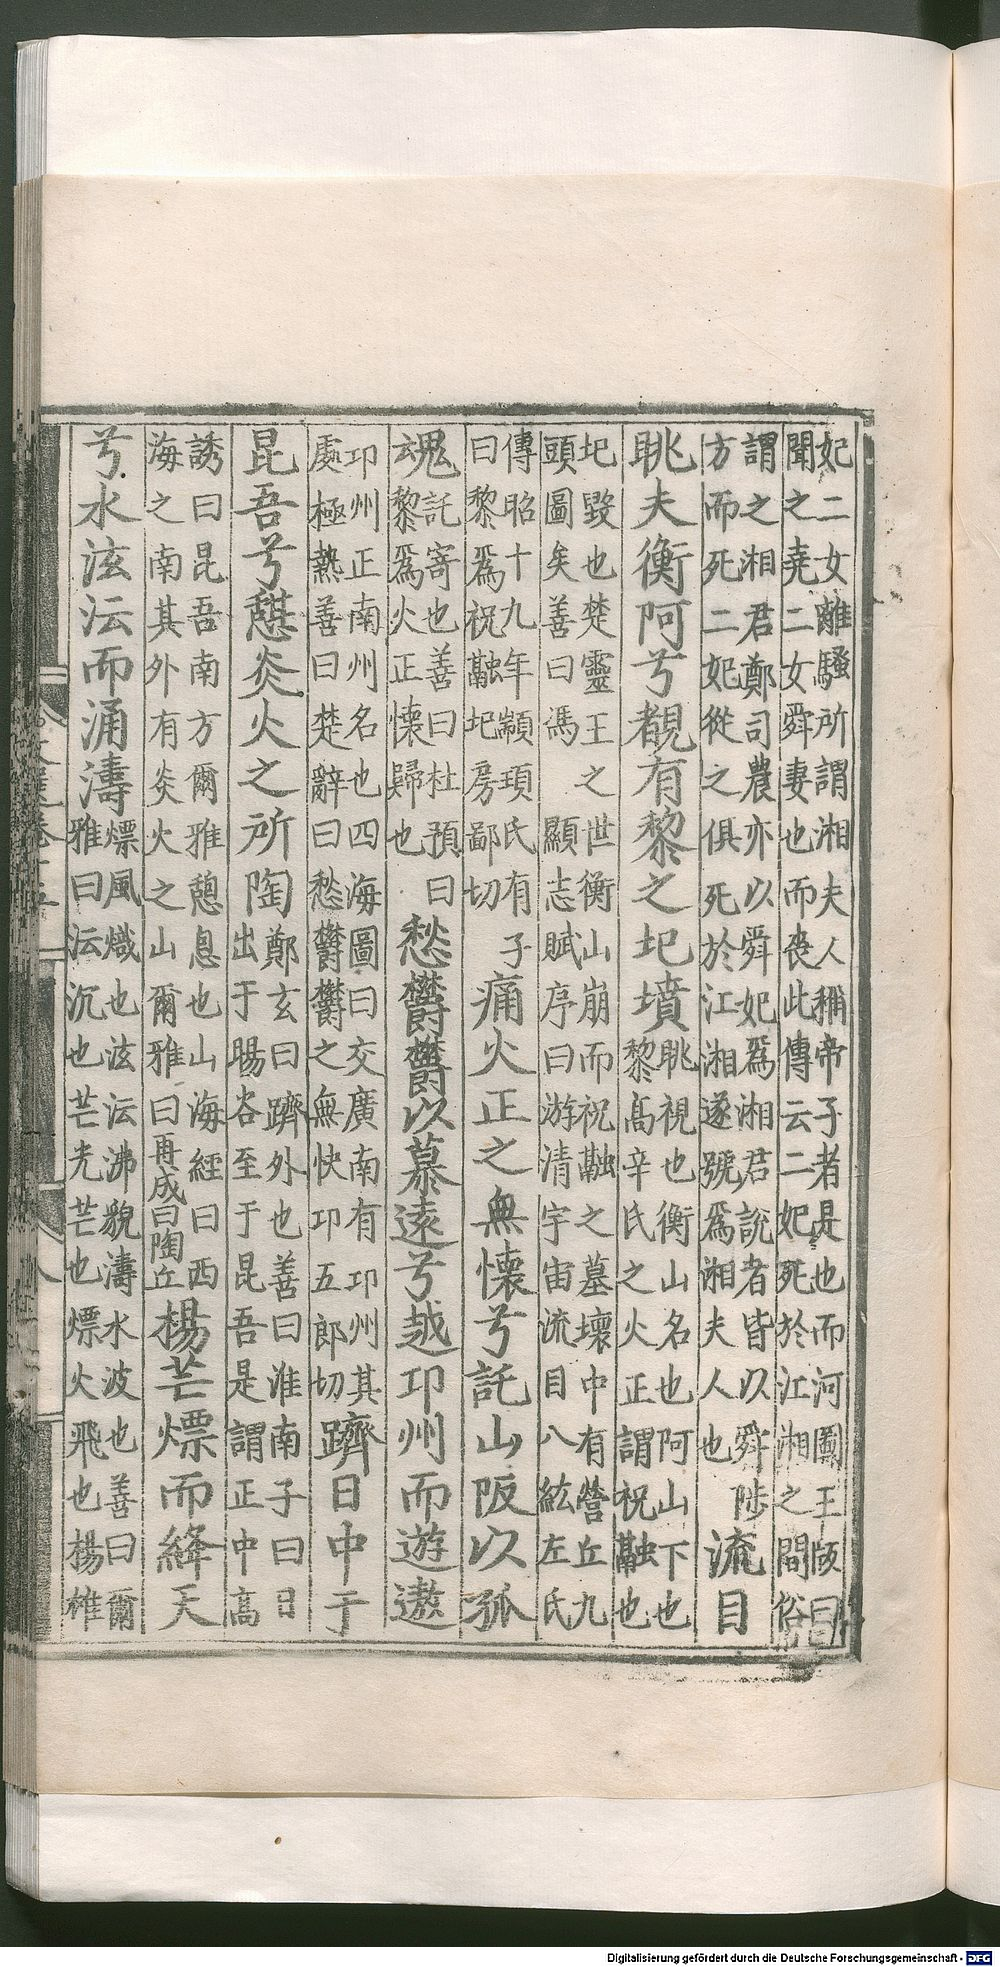 妃二女離騷所謂湘夫人稱帝子者是也而河圖王版曰
聞之堯二女舜妻也而喪此傳云二妃死於江湘之閒俗
謂之湘君鄭司農亦以舜妃爲湘君說者皆以舜陟
方而死二妃從之俱死於江湘遂號爲湘夫人也
流目
眺夫衡阿兮覩有黎之圮墳
眺視也衡山名也阿山下也
黎高辛氏之火正謂祝融也
圮毀也楚靈王之世衡山崩而祝融之墓壞中有營丘九
頭圖矣善曰馮顯志賦序曰游清宇宙流目八紘左氏
傳昭十九年顓頊氏有子
曰黎爲祝融圮房鄙切
痛火正之無懷兮託山阪以孤
魂
託寄也善曰杜預曰
黎爲火正懷歸也
愁欝欝以慕遠兮越卭州而遊遨
卭州正南州名也四海圖曰交廣南有卭州其
處極熱善曰楚辭曰愁欝欝之無快卭五郎切
躋日中于
昆吾兮憇炎火之所陶
鄭玄曰躋外也善曰淮南子曰日
出于暘谷至于昆吾是謂正中高
誘曰昆吾南方爾雅憩息也山海經曰西
海之南其外有炎火之山爾雅曰再成曰陶丘
楊芒熛而絳天
兮水泫沄而涌濤
熛風熾也泫沄沸貌濤水波也善曰爾
雅曰沄沉也芒光芒也熛火飛也楊雄